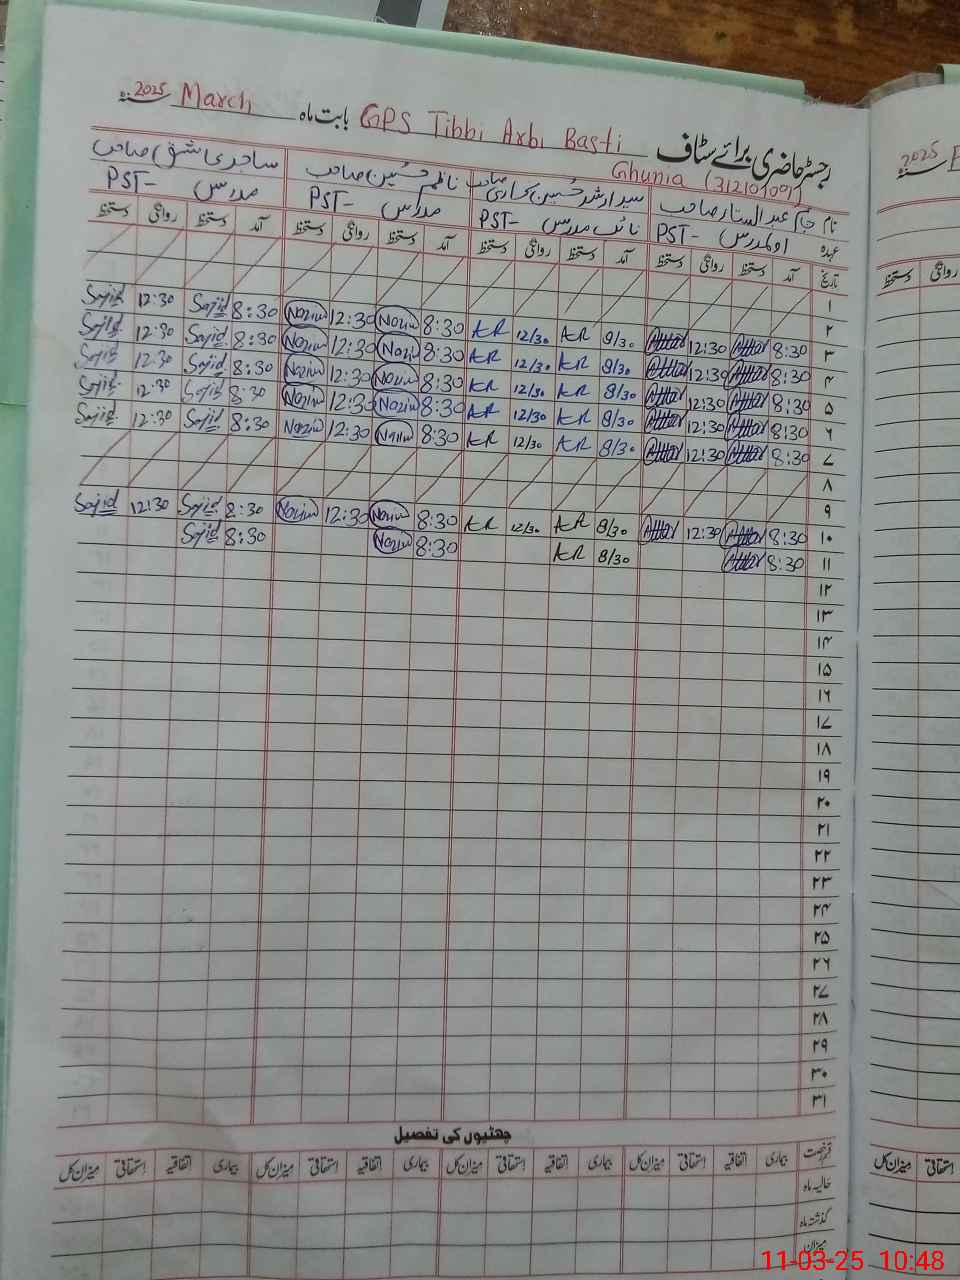 رجسٹر حاضری برائے سٹاف GPS Tibbi Arbi Basti بابت ماہ March سنہ 2025
Ghunia (31210109)
نام جام عبدالستار صاحب سید ارشد حسین بخاری صاحب ناظم حسین صاحب ساجد عاشق صاحب
عہدہ اول مدرس PST- نائب مدرس PST- مدرس PST- مدرس PST-
تاریخ آمد دستخط روانگی دستخط آمد دستخط روانگی دستخط آمد دستخط روانگی دستخط آمد دستخط روانگی دستخط
۱
۲
۳ 8:30 Attar 12:30 Attar 8/30 AR 12/30 AR 8:30 Nazim 12:30 Nazim 8:30 Sajid 12:30 Sajid
۴ 8:30 Attar 12:30 Attar 8/30 AR 12/30 AR 8:30 Nazim 12:30 Nazim 8:30 Sajid 12:30 Sajid
۵ 8:30 Attar 12:30 Attar 8/30 AR 12/30 AR 8:30 Nazim 12:30 Nazim 8:30 Sajid 12:30 Sajid
۶ 8:30 Attar 12:30 Attar 8/30 AR 12/30 AR 8:30 Nazim 12:30 Nazim 8:30 Sajid 12:30 Sajid
۷ 8:30 Attar 12:30 Attar 8/30 AR 12/30 AR 8:30 Nazim 12:30 Nazim 8:30 Sajid 12:30 Sajid
۸
۹
۱۰ 8:30 Attar 12:30 Attar 8/30 AR 12/30 AR 8:30 Nazim 12:30 Nazim 8:30 Sajid 12:30 Sajid
۱۱ 8:30 Attar 8/30 AR 8:30 Nazim 8:30 Sajid
۱۲
۱۳
۱۴
۱۵
۱۶
۱۷
۱۸
۱۹
۲۰
۲۱
۲۲
۲۳
۲۴
۲۵
۲۶
۲۷
۲۸
۲۹
۳۰
۳۱
چھٹیوں کی تفصیل
قسم رخصت بیماری اتفاقیہ استحقاقی میزان کل بیماری اتفاقیہ استحقاقی میزان کل بیماری اتفاقیہ استحقاقی میزان کل بیماری اتفاقیہ استحقاقی میزان کل
حالیہ ماہ
گذشتہ ماہ
میزان
سنہ 2025
روانگی دستخط
استحقاقی میزان کل
11-03-25 10:48